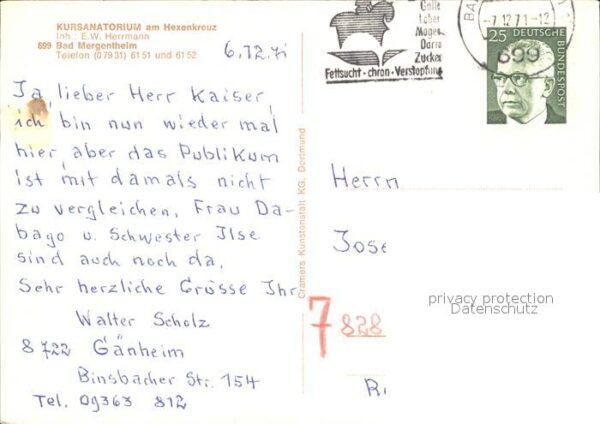 KURSANATORIUM am Hexenkreuz
Inh.: E.W. Herrmann
699 Bad Mergentheim
Telefon (07931) 6151 und 6152
6.12.71
Ja, lieber Herr Kaiser,
ich bin nun wieder mal
hier, aber das Publikum
ist mit damals nicht
zu vergleichen. Frau Da-
bago u. Schwester Ilse
sind auch noch da.
Sehr herzliche Grüsse Ihr
Walter Scholz
8722 Gänheim
Binsbacher Str. 154
Tel. 09363 812
Cramers Kunstanstalt KG, Dortmund
Galle
Leber
Magen
Darm
Zucker
Fettsucht-chron-Verstopfung
BA
-7.12.71-12
699
25 DEUTSCHE
BUNDESPOST
Herrn
Jose
7 828
privacy protection
Datenschutz